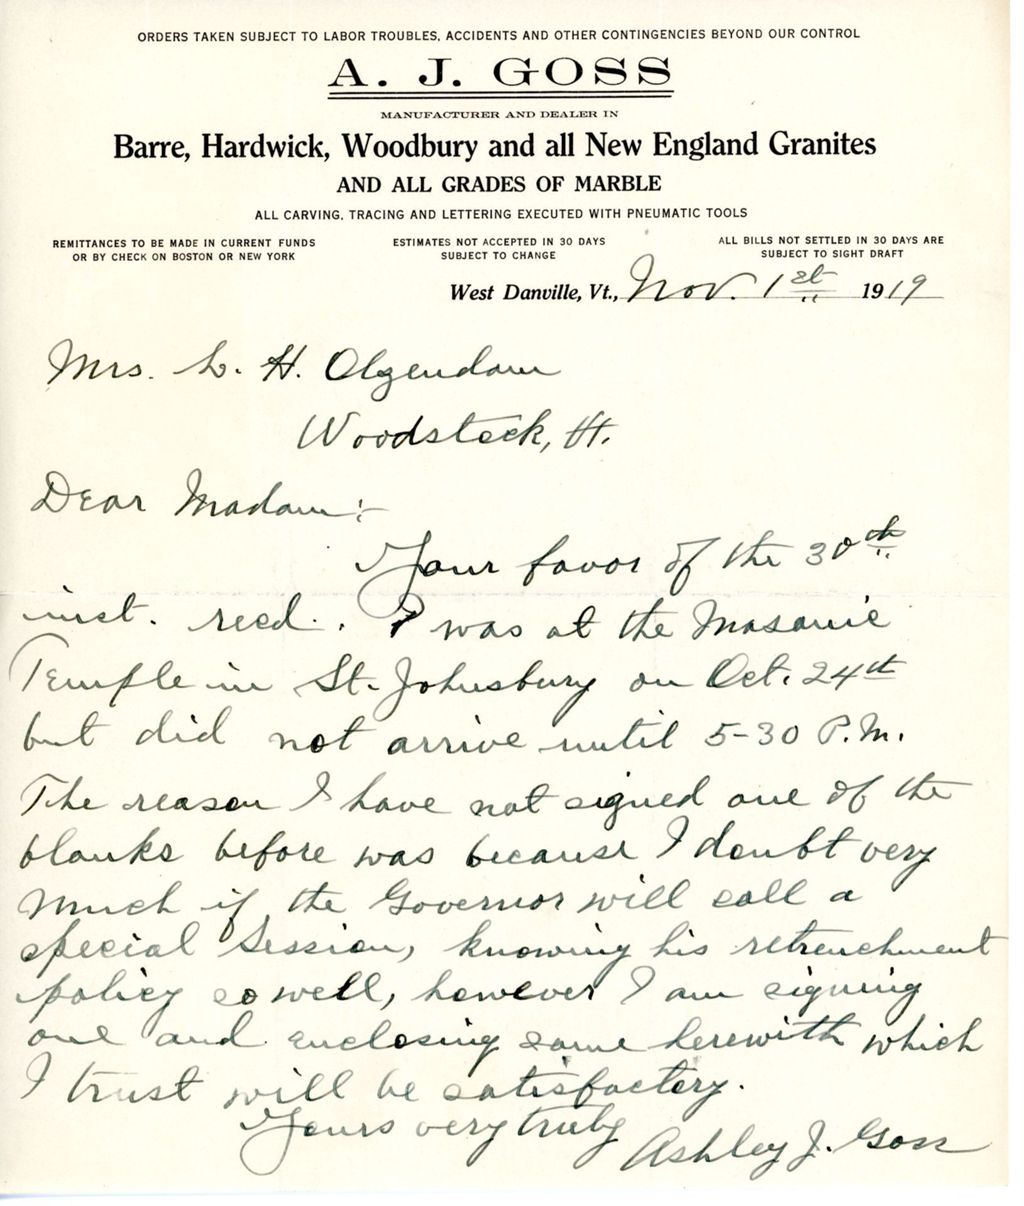 ORDERS TAKEN SUBJECT TO LABOR TROUBLES, ACCIDENTS AND OTHER CONTINGENCIES BEYOND OUR CONTROL
A. J. GOSS
MANUFACTURER AND DEALER IN
Barre, Hardwick, Woodbury and all New England Granites
AND ALL GRADES OF MARBLE
ALL CARVING, TRACING AND LETTERING EXECUTED WITH PNEUMATIC TOOLS
REMITTANCES TO BE MADE IN CURRENT FUNDS
OR BY CHECK ON BOSTON OR NEW YORK
ESTIMATES NOT ACCEPTED IN 30 DAYS
SUBJECT TO CHANGE
ALL BILLS NOT SETTLED IN 30 DAYS ARE
SUBJECT TO SIGHT DRAFT
West Danville, Vt., Nov. 1st 1919
Mrs. L. H. Olzendam
Woodstock, Vt.
Dear Madam:-
Your favor of the 30th
inst. recd. I was at the Masonic
Temple in St. Johnsbury on Oct. 24th
but did not arrive until 5-30 P.M.
The reason I have not signed one of the
blanks before was because I doubt very
much if the Governor will call a
special session, knowing his retrenchment
policy so well, however I am signing
one and enclosing same herewith which
I trust will be satisfactory.
Yours very truly
Ashley J. Goss